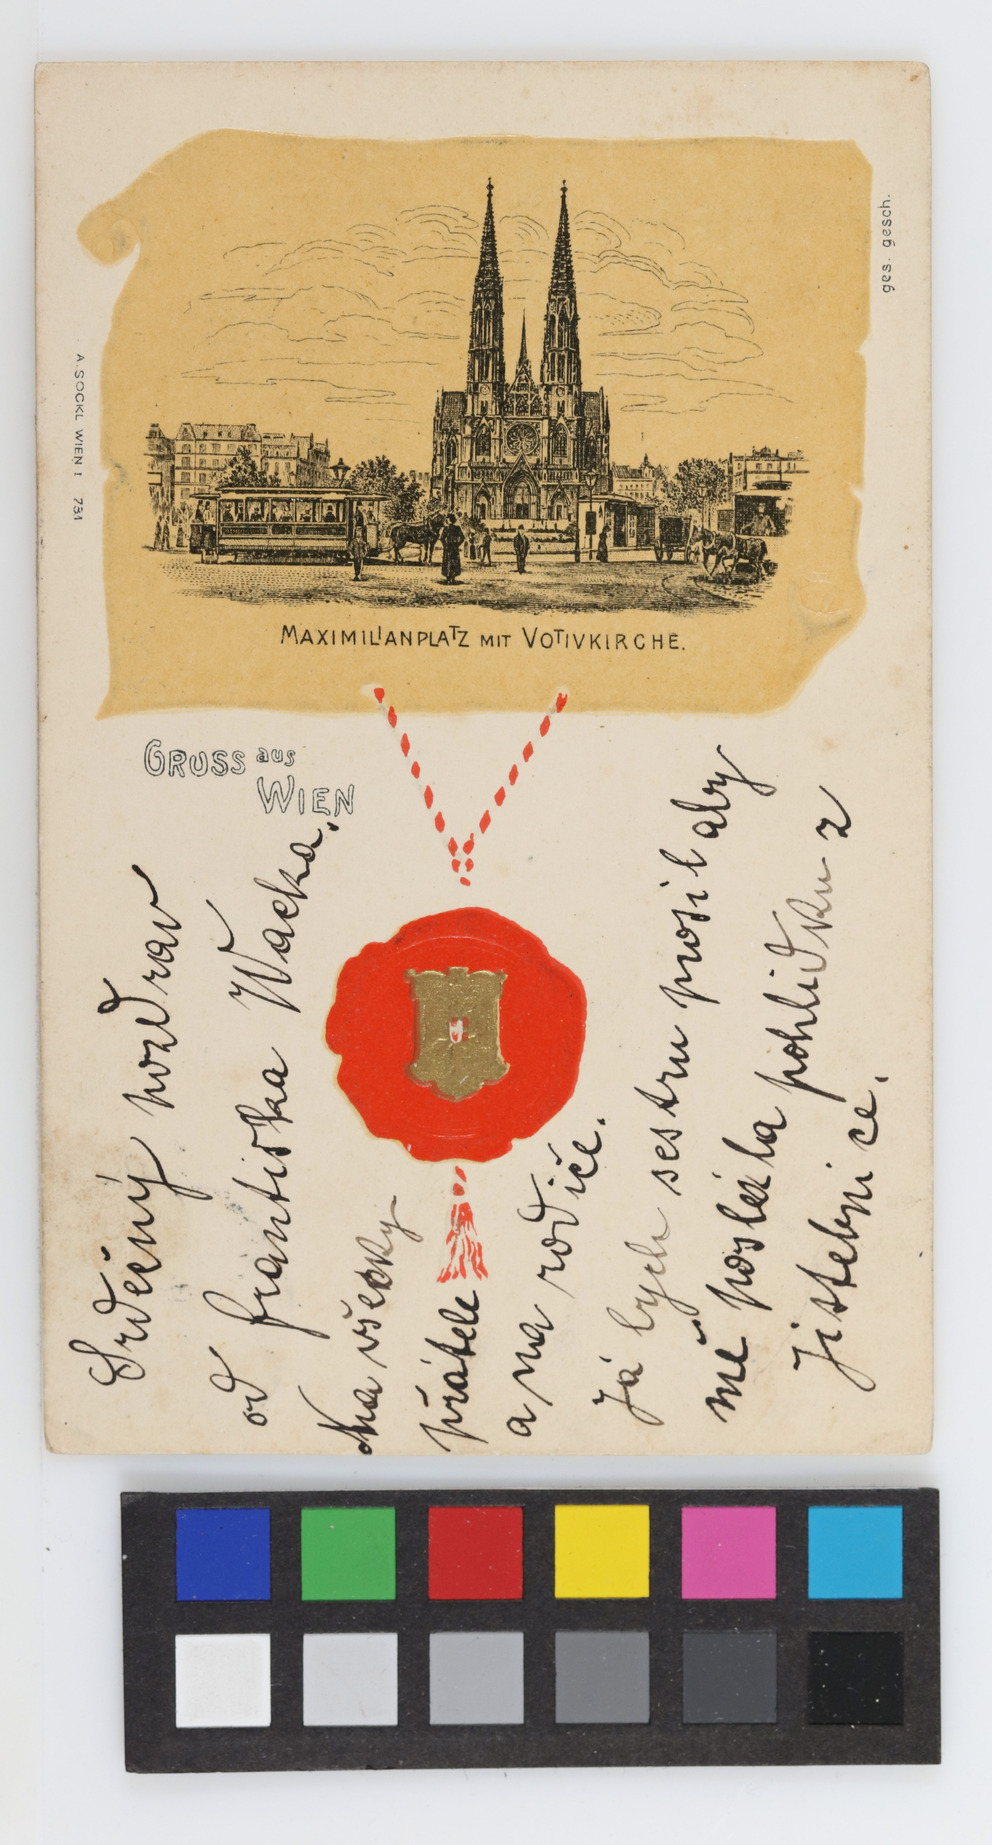 MAXIMILIANPLATZ MIT VOTIVKIRCHE.
ges. gesch.
A. SOCKL WIEN I 731
GRUSS aus
WIEN
Srdečný pozdrav
od františka Wacka.
na všecky
přátele
a na rodiče.
Já bych sestru prosil aby
mě poslala pohlidku z
Jistebnice.